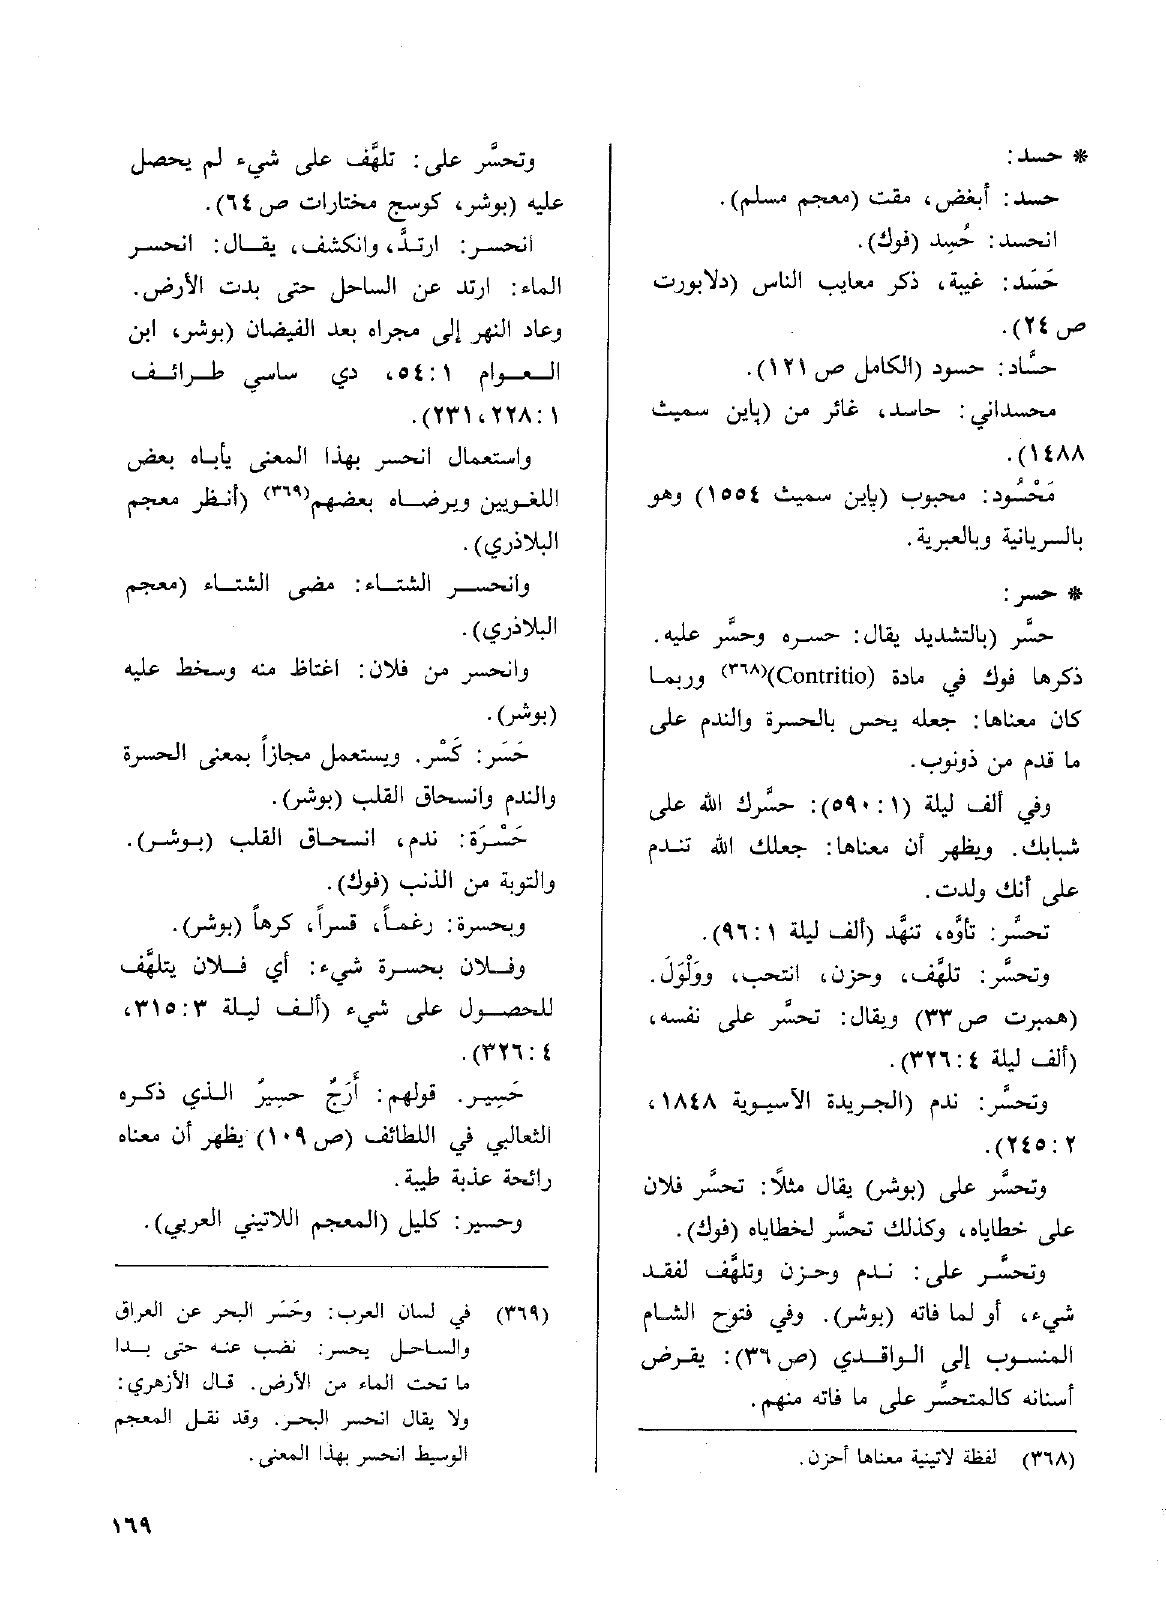 * حسد :
حسد : أبغض، مقت (معجم مسلم).
انحسد : حُسِد (فوك).
حَسَد : غيبة، ذكر معايب الناس (دلابورت
ص ٢٤).
حسَّاد : حسود (الكامل ص ١٢١).
محسداني : حاسد، غائر من (پاين سميث
١٤٨٨).
مَحْسُود : محبوب (پاين سميث ١٥٥٤) وهو
بالسريانية وبالعبرية.
* حسر :
حسَّر (بالتشديد يقال : حسره وحسَّر عليه.
ذكرها فوك في مادة (Contritio)(٣٦٨) وربما
كان معناها : جعله يحس بالحسرة والندم على
ما قدم من ذونوب.
وفي ألف ليلة (١ : ٥٩٠) : حسَّرك الله على
شبابك. ويظهر أن معناها : جعلك الله تندم
على أنك ولدت.
تحسَّر : تأوَّه، تنهَّد (ألف ليلة ١ : ٩٦).
وتحسَّر : تلهَّف، وحزن، انتحب، وولْوَلَ.
(همبرت ص ٣٣) ويقال : تحسَّر على نفسه،
(ألف ليلة ٤ : ٣٢٦).
وتحسَّر : ندم (الجريدة الآسيوية ١٨٤٨،
٢ : ٢٤٥).
وتحسَّر على (بوشر) يقال مثلاً : تحسَّر فلان
على خطاياه، وكذلك تحسَّر لخطاياه (فوك).
وتحسَّر على : ندم وحزن وتلهَّف لفقد
شيء، أو لما فاته (بوشر). وفي فتوح الشام
المنسوب إلى الواقدي (ص ٣٦) : يقرض
أسنانه كالمتحسِّر على ما فاته منهم.
(٣٦٨) لفظة لاتينية معناها أحزن.
وتحسَّر على : تلهَّف على شيء لم يحصل
عليه (بوشر، كوسج مختارات ص ٦٤).
انحسر : ارتدَّ، وانكشف، يقال : انحسر
الماء : ارتد عن الساحل حتى بدت الأرض.
وعاد النهر إلى مجراه بعد الفيضان (بوشر، ابن
العوام ١ : ٥٤، دي ساسي طرائف
١ : ٢٢٨، ٢٣١).
واستعمال انحسر بهذا المعنى يأباه بعض
اللغويين ويرضاه بعضهم(٣٦٩) (أنظر معجم
البلاذري).
وانحسر الشتاء : مضى الشتاء (معجم
البلاذري).
وانحسر من فلان : اغتاظ منه وسخط عليه
(بوشر).
حَسَر : كَسْر. ويستعمل مجازاً بمعنى الحسرة
والندم وانسحاق القلب (بوشر).
حَسْرَة : ندم، انسحاق القلب (بوشر).
والتوبة من الذنب (فوك).
وبحسرة : رغماً، قسراً، كرهاً (بوشر).
وفلان بحسرة شيء : أي فلان يتلهَّف
للحصول على شيء (ألف ليلة ٣ : ٣١٥،
٤ : ٣٢٦).
حَسِير. قولهم : أَرَجٌ حسِيرٌ الذي ذكره
الثعالبي في اللطائف (ص ١٠٩) يظهر أن معناه
رائحة عذبة طيبة.
وحسير : كليل (المعجم اللاتيني العربي).
(٣٦٩) في لسان العرب : وحَسَر البحر عن العراق
والساحل يحسر : نضب عنه حتى بدا
ما تحت الماء من الأرض. قال الأزهري :
ولا يقال انحسر البحر. وقد نقل المعجم
الوسيط انحسر بهذا المعنى.
١٦٩